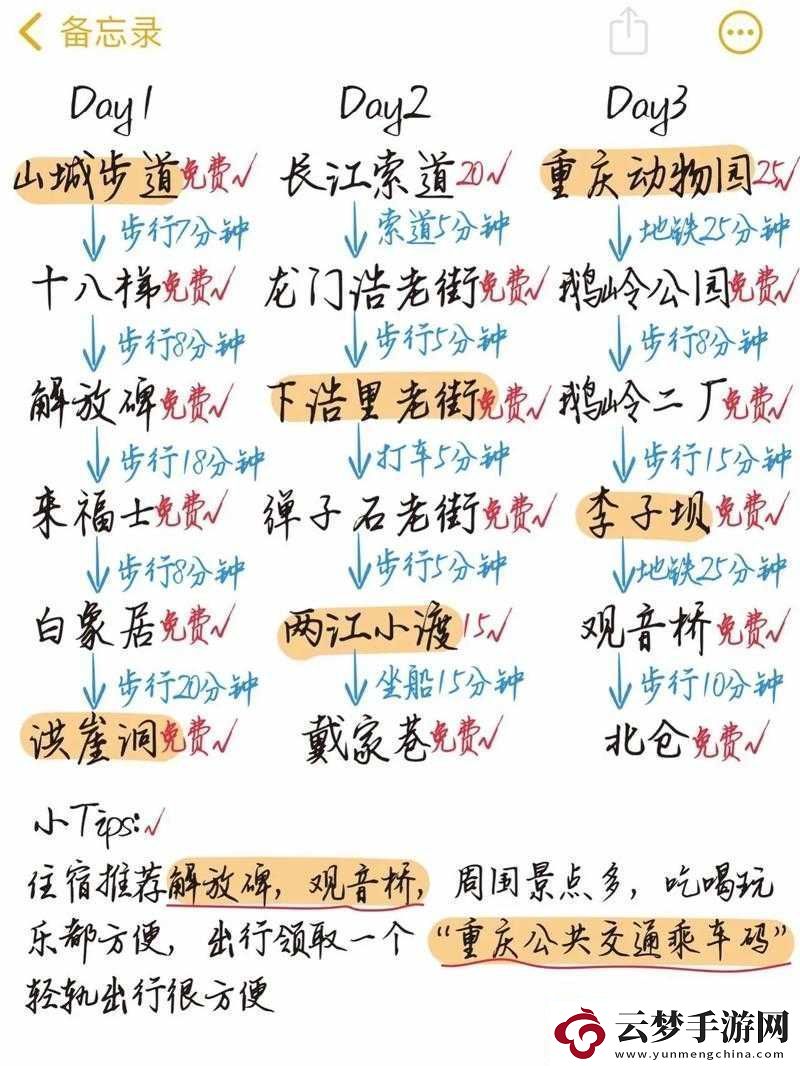 备忘录
Day1 Day2 Day3
山城步道免费√ 长江索道20√ 重庆动物园25√
步行7分钟 索道5分钟 地铁25分钟
十八梯免费√ 龙门浩老街免费√ 鹅岭公园免费√
步行8分钟 步行5分钟 步行8分钟
解放碑免费√ 下浩里老街免费√ 鹅岭二厂免费√
步行18分钟 打车5分钟 步行15分钟
来福士免费√ 弹子石老街免费√ 李子坝免费√
步行8分钟 步行5分钟 地铁25分钟
白象居免费√ 两江小渡15√ 观音桥免费√
步行20分钟 坐船15分钟 步行10分钟
洪崖洞免费√ 戴家巷免费√ 北仓免费√
小Tips:√
住宿推荐解放碑，观音桥，周围景点多，吃喝玩
乐都方便，出行领取一个“重庆公共交通乘车码”
轻轨出行很方便
云梦手游网
www.yunmengchina.com